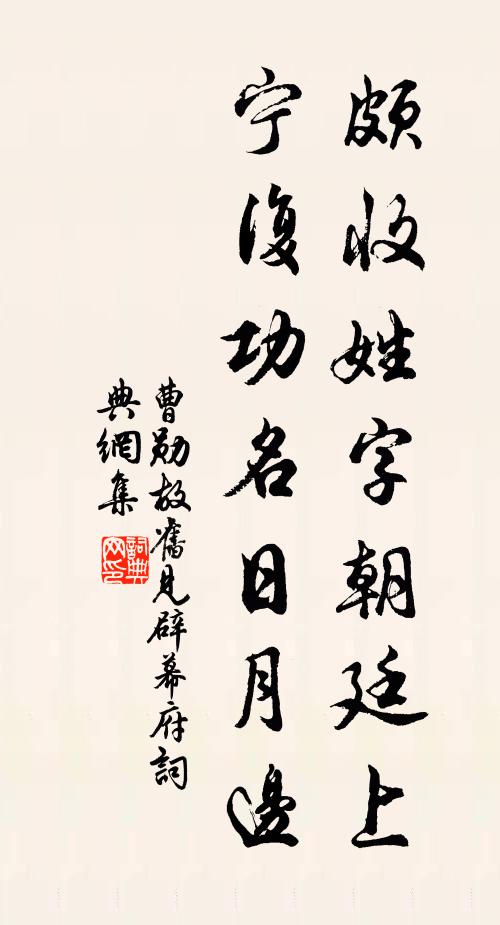 頗收姓字朝廷上
宁復功名日月邊
曹勛故舊見辟幕府詞
典網集
詞典
网印